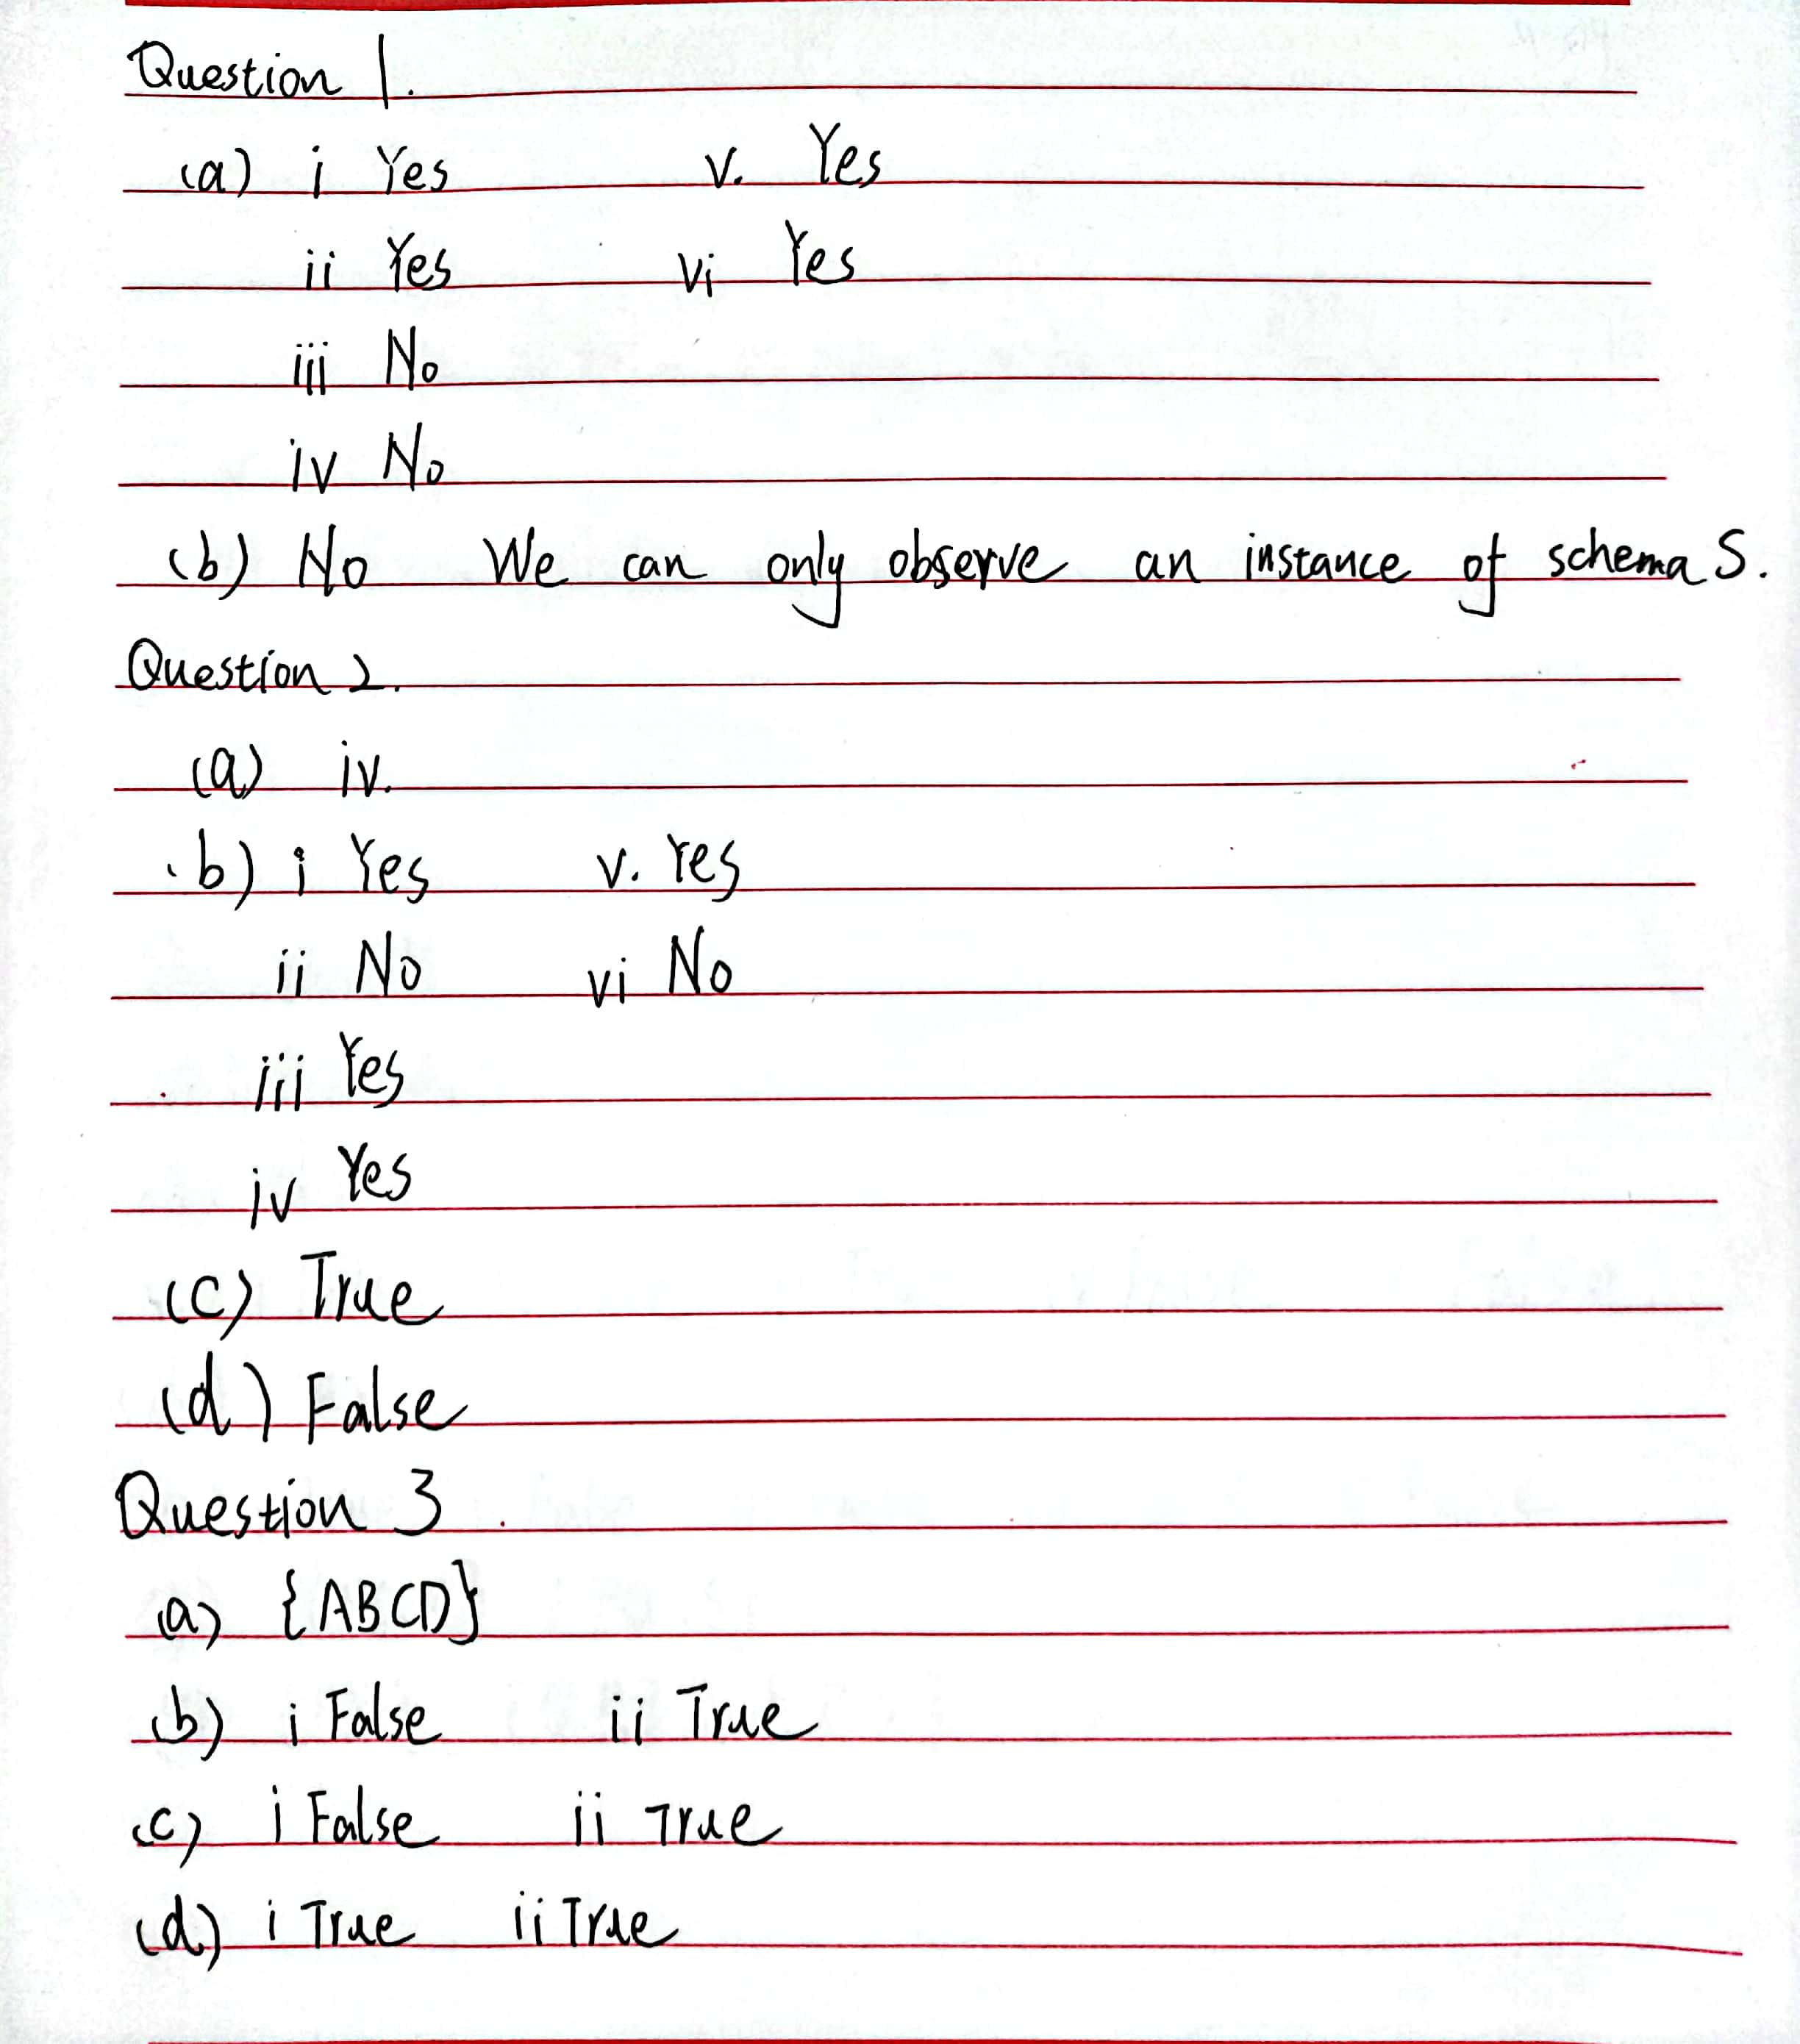 Question 1.
(a) i Yes v. Yes
ii Yes vi Yes
iii No
iv No
(b) No We can only observe an instance of schema S.
Question 2.
(a) iv.
(b) i Yes v. Yes
ii No vi No
iii Yes
iv Yes
(c) True
(d) False
Question 3.
(a) {ABCD}
(b) i False ii True
(c) i False ii True
(d) i True ii True